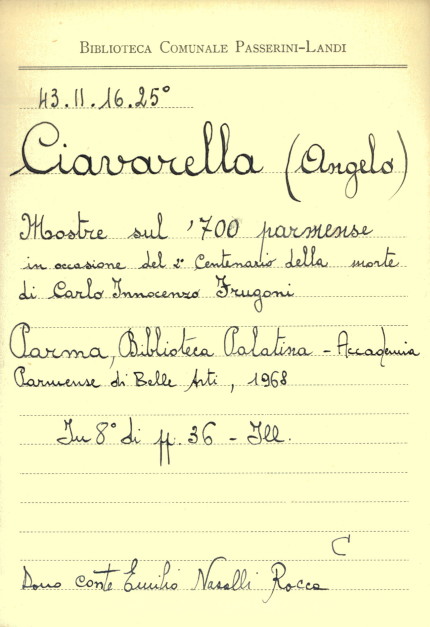 BIBLIOTECA COMUNALE PASSERINI-LANDI
43.II.16.25°
Ciavarella (Angelo)
Mostre sul '700 parmense
in occasione del 2° Centenario della morte
di Carlo Innocenzo Frugoni
Parma, Biblioteca Palatina - Accademia
Parmense di Belle Arti, 1968
In 8° di pp. 36 - Ill.
C
Dono conte Emilio Nasalli Rocca